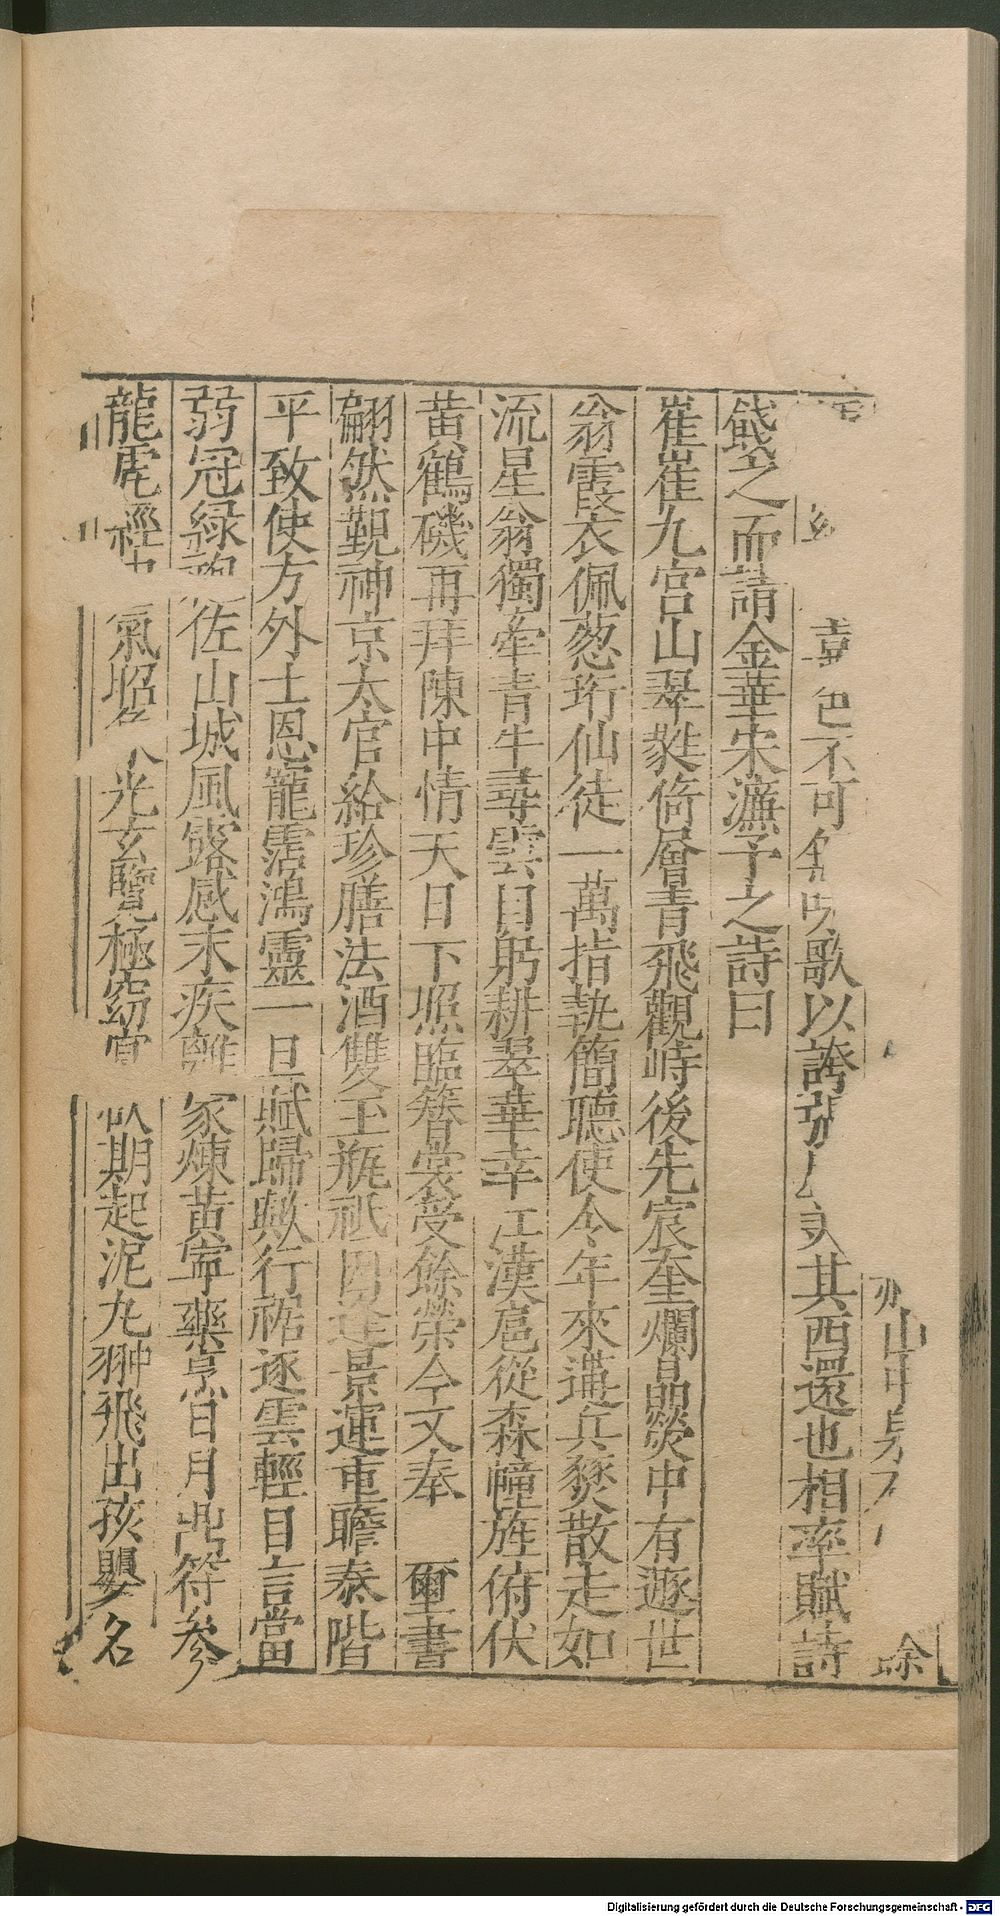 山中泉石 餘
喜色不可 歌以誇張 其西還也相率賦詩
餞之而請金華宋濂予之詩曰
崔崔九宮山翠蕤倚層青飛觀峙後先宸奎爛昌熒中有遯世
翁霞衣佩蔥珩仙徒一萬指執簡聽使令年來遘兵燹散走如
流星翁獨牽青牛尋雲自躬耕翠華幸江漢扈從森幢旌俯伏
黃鶴磯再拜陳中情天日下照臨簪裳受餘榮今文奉 璽書
翩然覲神京太官給珍膳法酒雙玉瓶祇因逢景運重瞻泰階
平致使方外士恩寵霑鴻靈一旦賦歸歟行裾逐雲輕自言當
弱冠綠 佐山城風露感末疾離家煉黃甯藥烹日月 符參
龍虎經 氣 光玄覽極窈 期起泥丸翀飛出孩嬰名
Digitalisierung gefördert durch die Deutsche Forschungsgemeinschaft - DFG